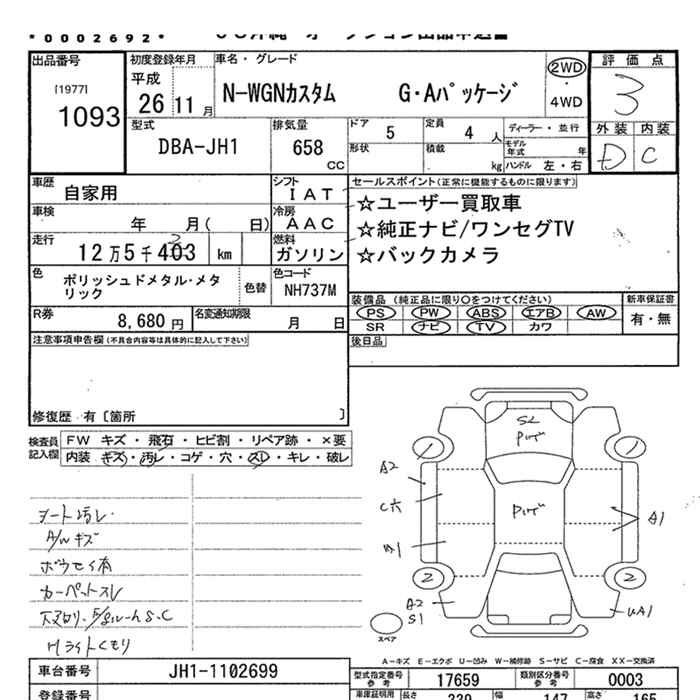 *0002692*
出品番号 初度登録年月 車名・グレード 評価点
[1977] 平成 2WD 3
1093 26 11月 N-WGNカスタム G・Aパッケージ ・ 4WD
外装 内装
D C
型式 排気量 ドア 5 定員 4人 ディーラー・並行
DBA-JH1 658 CC 形状 積載 kg モデル年式 年
ハンドル 左・右
車歴 自家用 シフト IAT セールスポイント(正常に機能するものに限ります)
車検 年 月( 日) 冷房 AAC ☆ユーザー買取車
走行 12万5千403 km 燃料 ガソリン ☆純正ナビ/ワンセグTV
☆バックカメラ
色 ポリッシュドメタル・メタリック 色替 色コード NH737M
装備品(純正品に限り○をつけてください) 新車保証書
PS PW ABS エアB AW 有・無
SR ナビ TV カワ
R券 8,680円 名変通知期限 月 日
注意事項申告欄(不具合内容等は具体的に記入して下さい) 後日品
修復歴 有〔箇所 〕
検査員記入欄 FW キズ・飛石・ヒビ割・リペア跡・×要
内装 キズ・汚レ・コゲ・穴・スレ・キレ・破レ
シート汚レ
A/Wキズ
カーペットスレ
Hライトくもり
A2
A1
2
2
A2
S1
UA1
スペア
A-キズ E-エクボ U-凹み W-補修跡 S-サビ C-腐食 XX-交換済
車台番号 JH1-1102699 型式指定番号 参考 17659 類別区分番号 参考 0003
登録番号 車庫証明用 長さ 339 幅 147 高さ 165